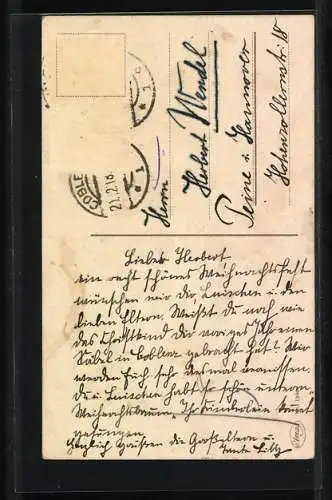 COBLE
21.2.16
Herrn
Herbert Wendel
Peine i/ Hannover
Hohenzollernstr. 18
Lieber Herbert
ein recht schönes Weihnachtsfest
wünschen wir dir, Luischen u. den
lieben Eltern. Weißt du noch wie
das Christkind dir voriges Jahr
Säbel in Coblenz gebracht hat? Wir
werden Euch sehr diesmal vermissen.
Du u. Luischen habt so schön unterm
Weihnachtsbaum „Ihr Kinderlein kommet
gesungen.
Herzlich grüßen die Großeltern u.
Tante Lilly